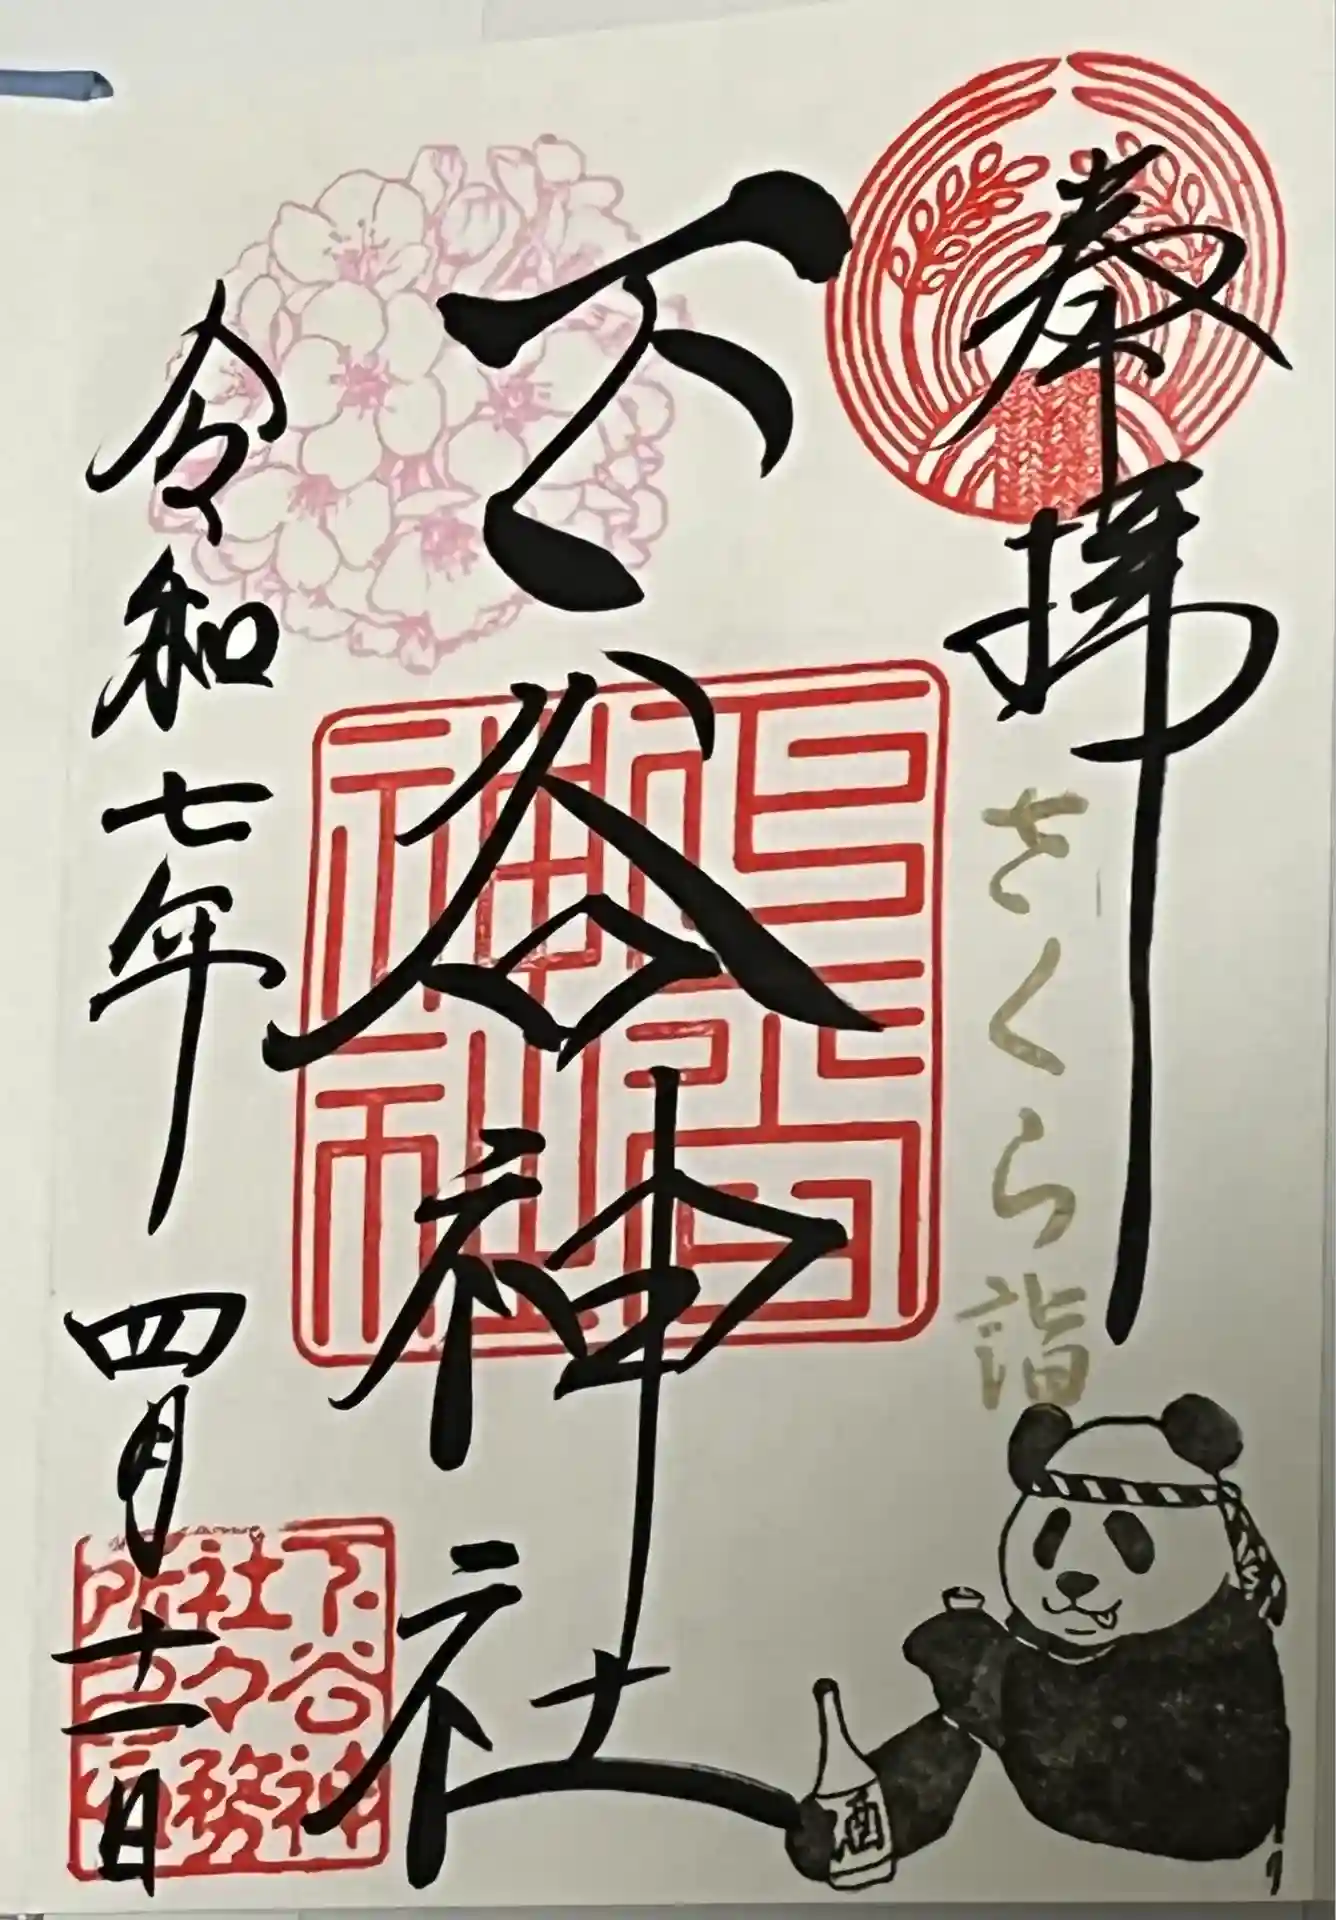 奉拝
さくら詣
下谷神社
令和七年四月十二日
下谷神
社々務
所之印
酒